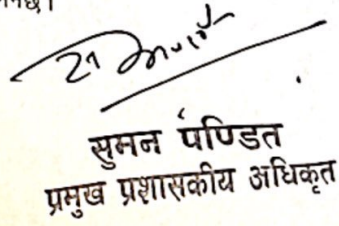 सुमन पण्डित
प्रमुख प्रशासकीय अधिकृत